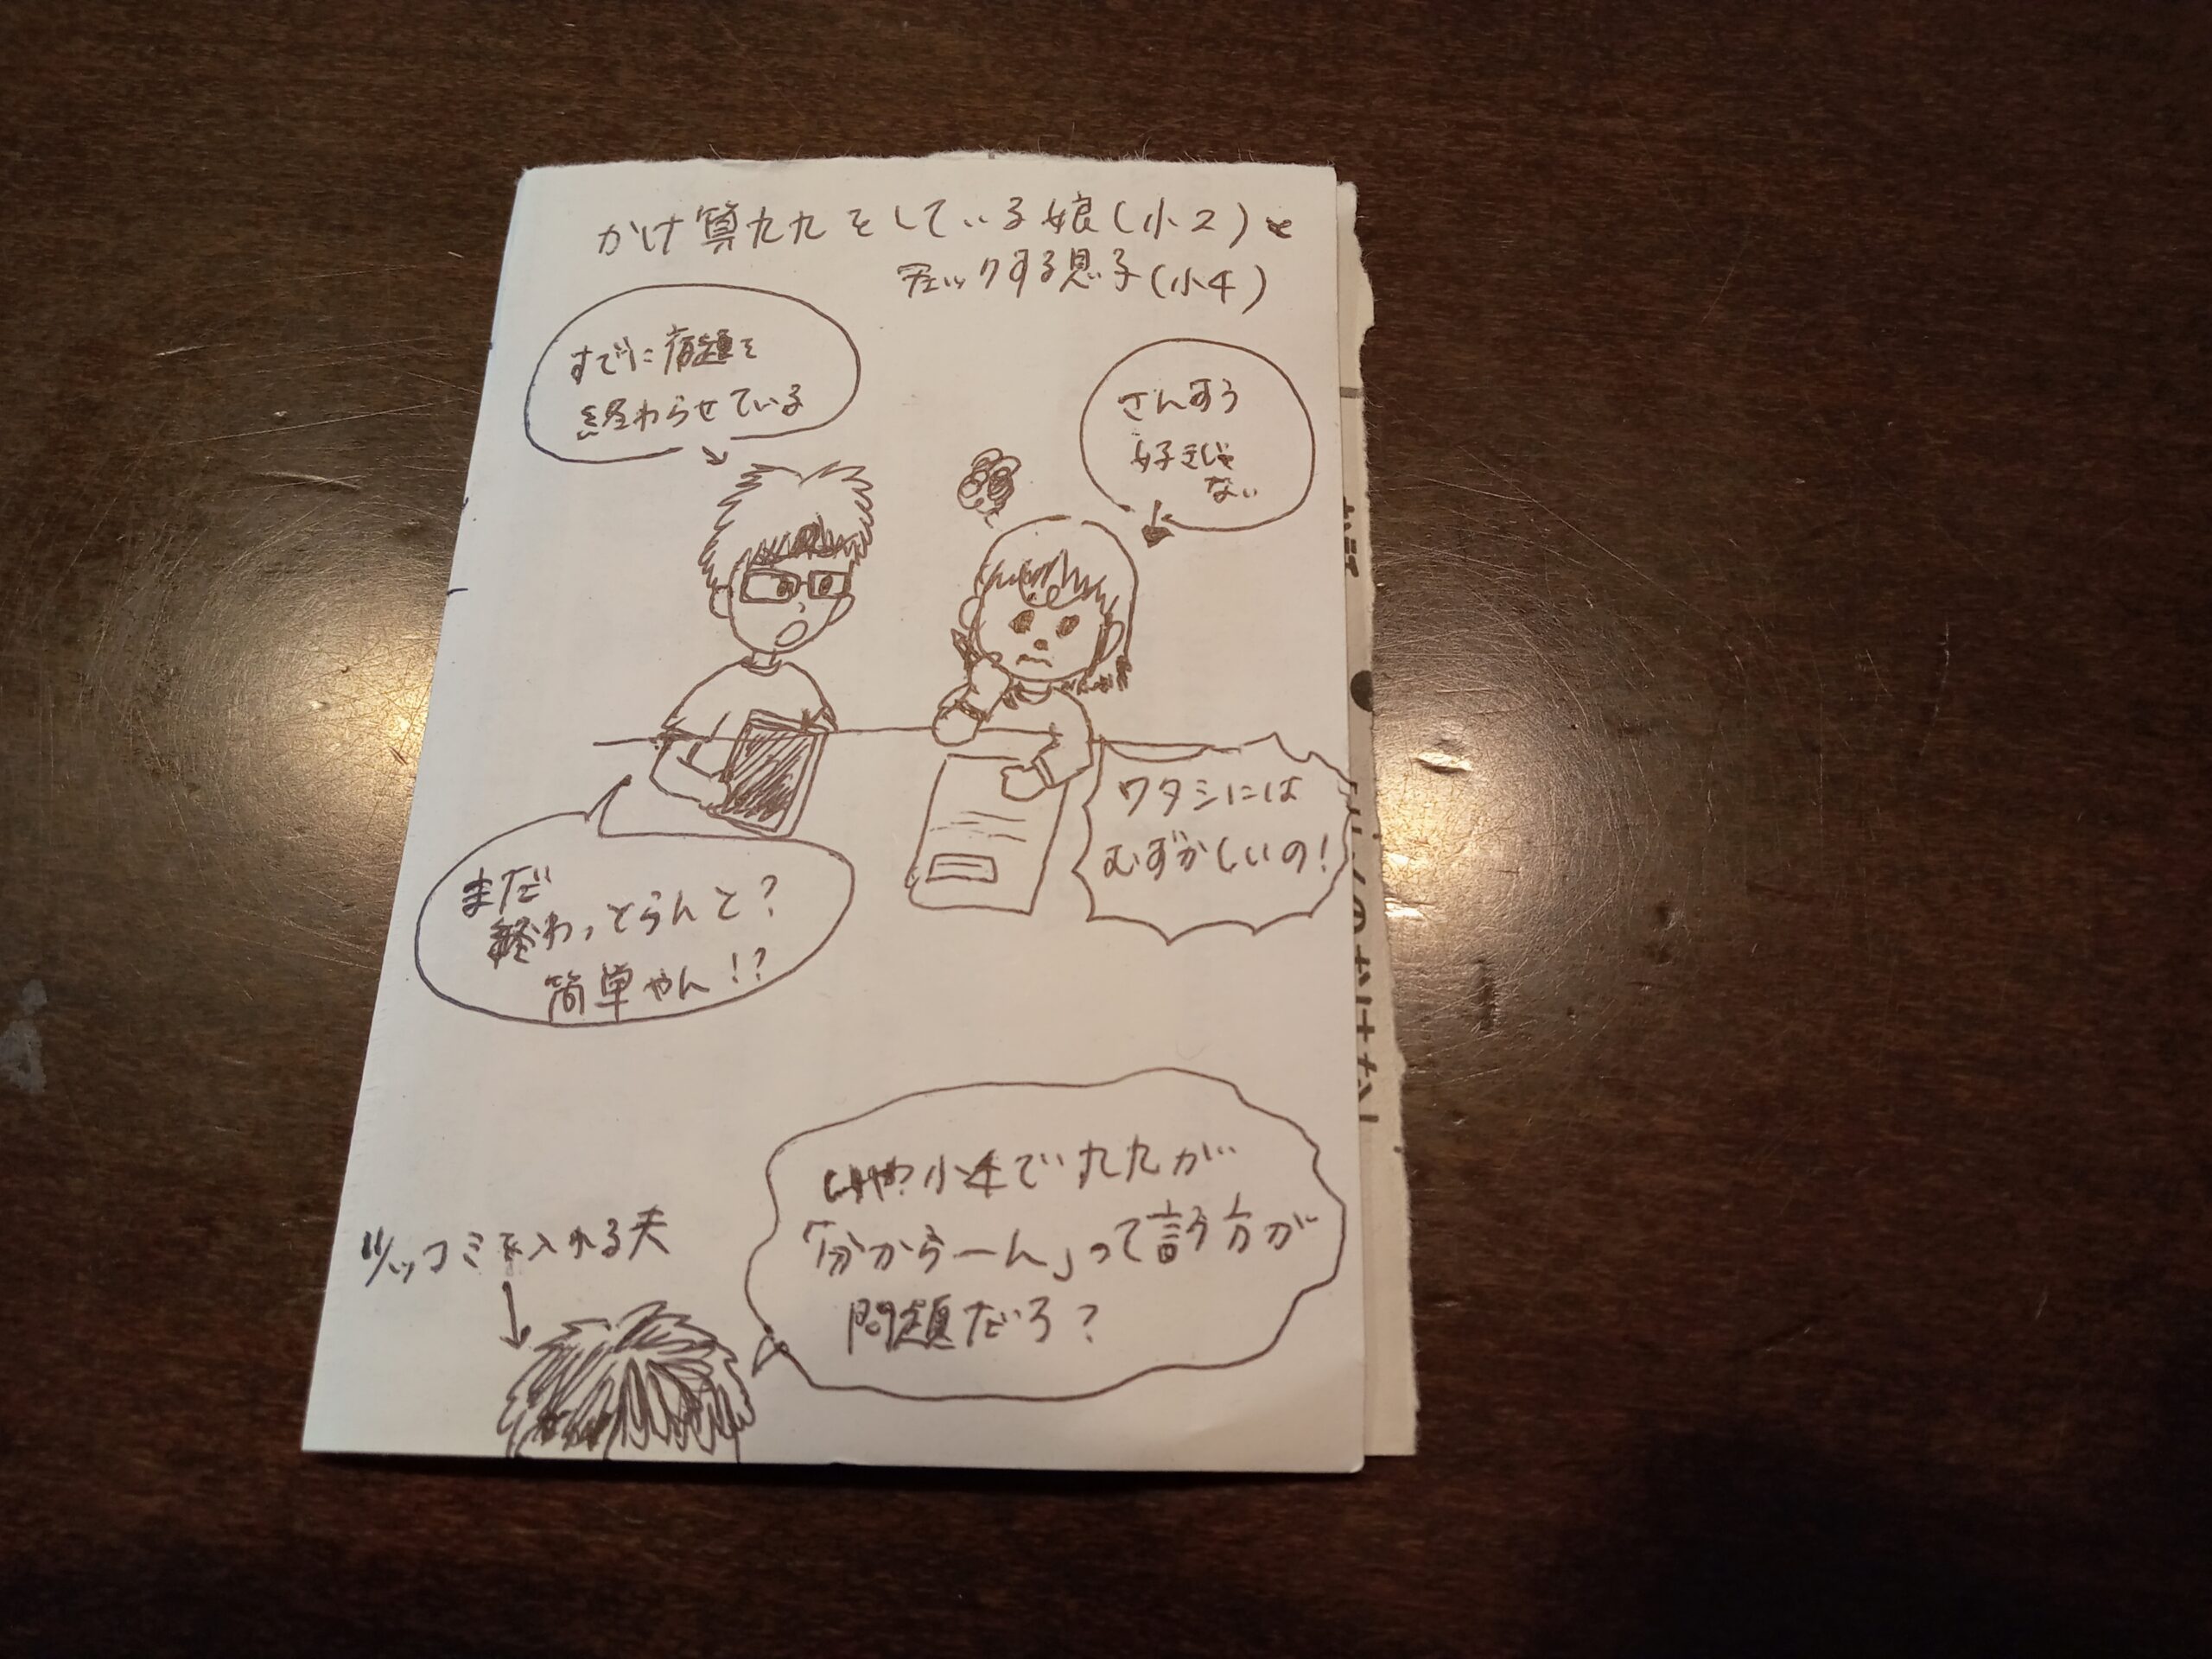 かけ算九九をしている娘(小2)と
チェックする息子(小4)
すでに宿題を
終わらせている
さんすう
好きじゃ
ない
ワタシには
むずかしいの!
まだ
終わっとらんと?
簡単やん!?
いや小4で九九が
「分からーん」って言う方が
問題だろ?
ツッコミを入れる夫